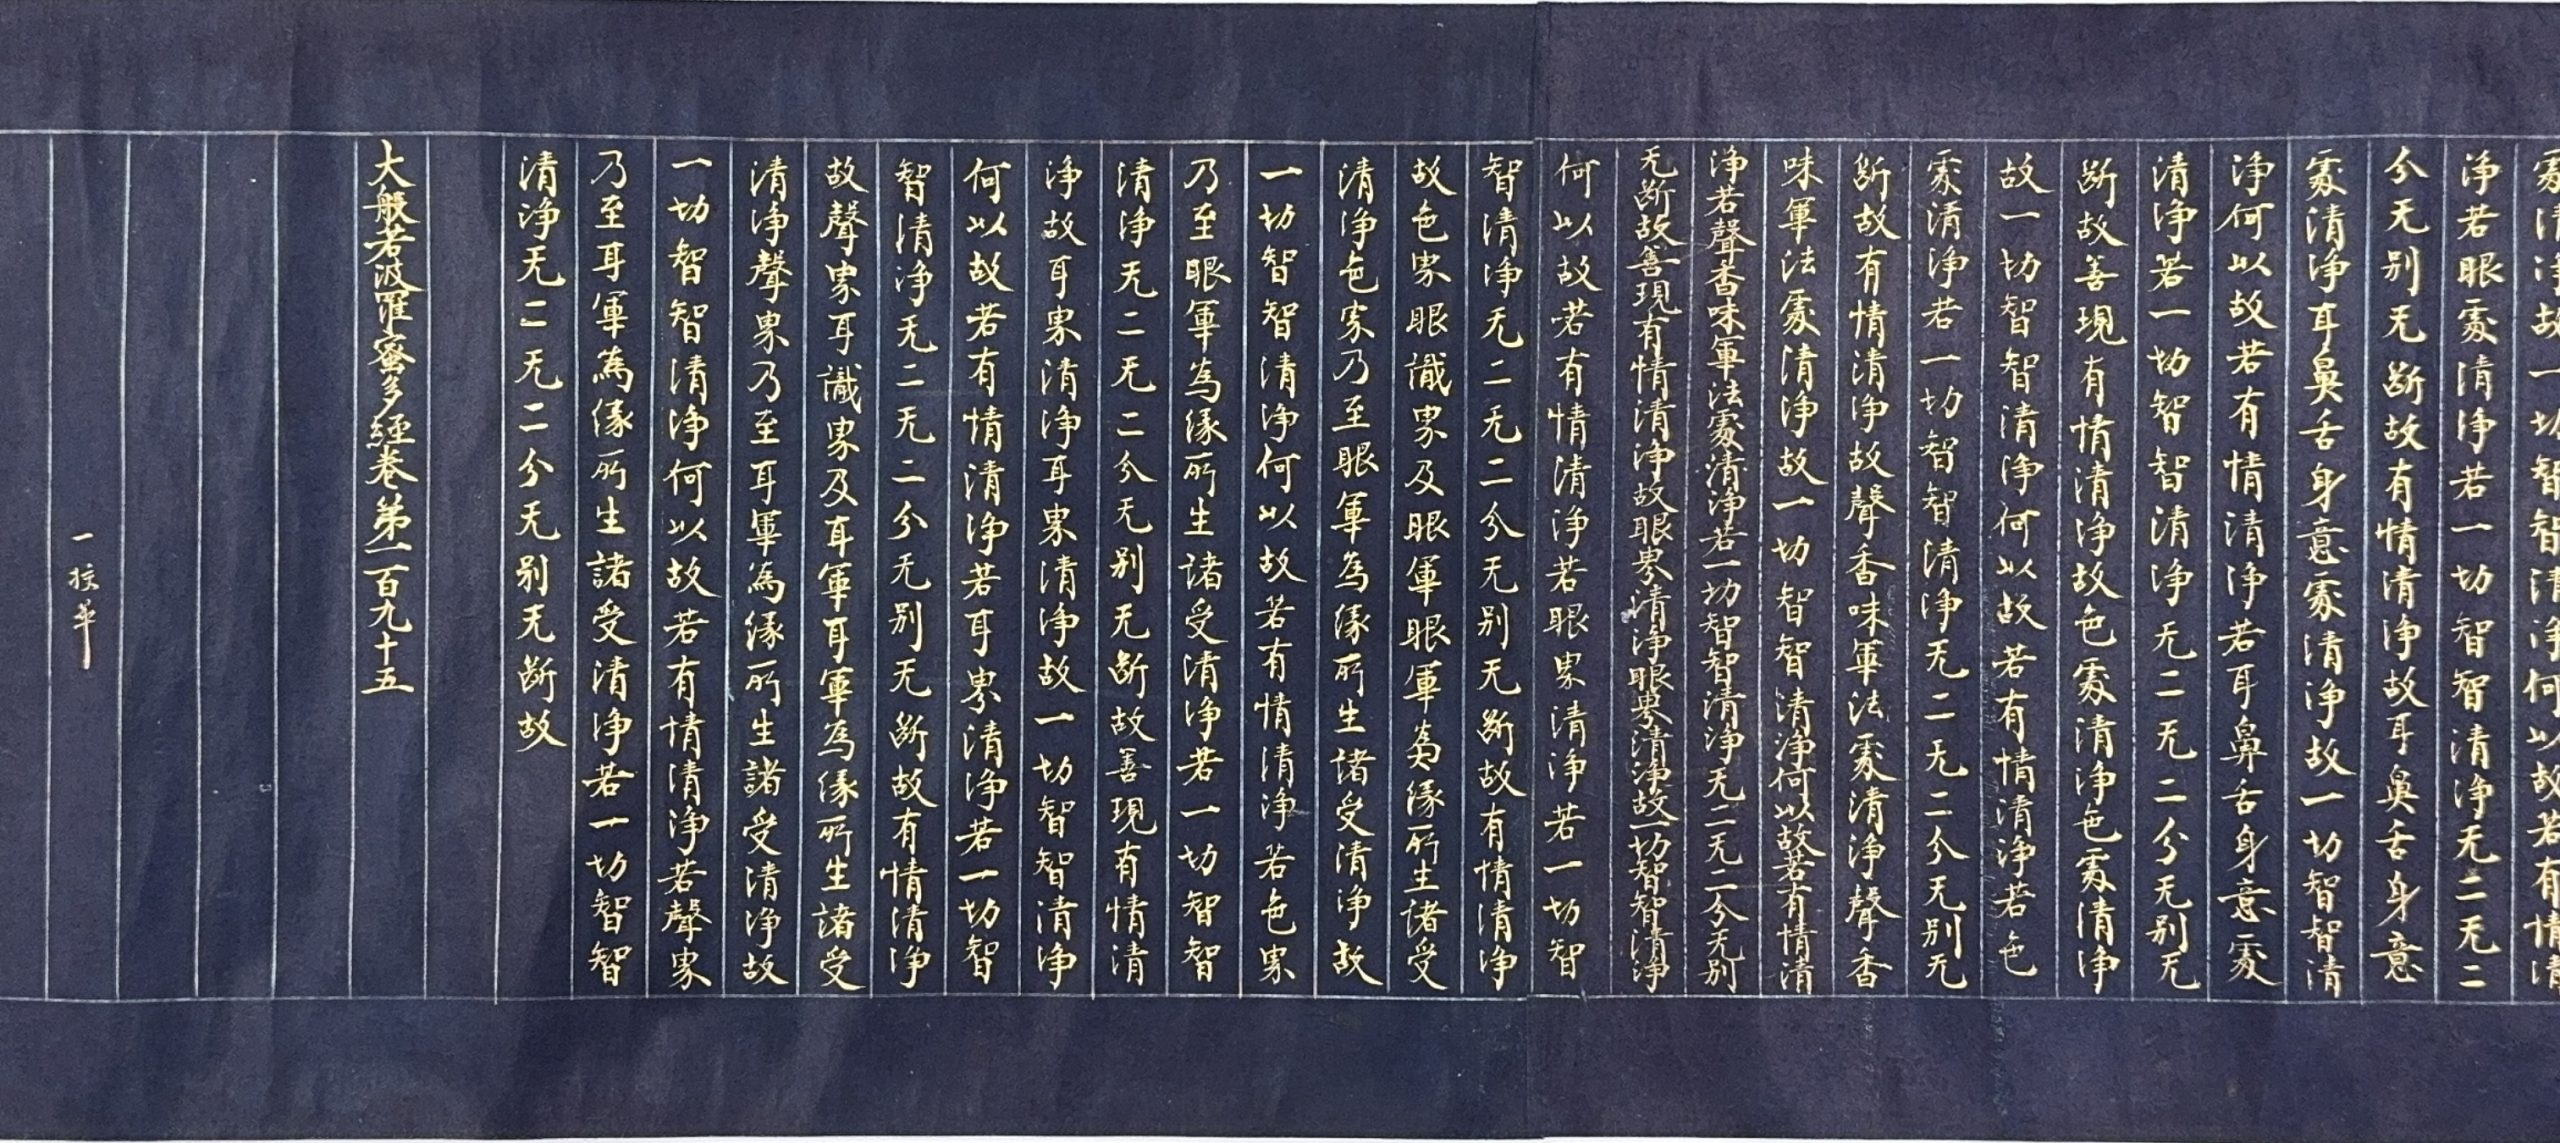 處清淨故一切智智清淨何以故若有情清
淨若眼處清淨若一切智智清淨无二无二
分无别无断故有情清淨故耳鼻舌身意
處清淨耳鼻舌身意處清淨故一切智智清
淨何以故若有情清淨若耳鼻舌身意處
清淨若一切智智清淨无二无二分无别无
断故善現有情清淨故色處清淨色處清淨
故一切智智清淨何以故若有情清淨若色
處清淨若一切智智清淨无二无二分无别无
断故有情清淨故聲香味觸法處清淨聲香
味觸法處清淨故一切智智清淨何以故若有情清
淨若聲香味觸法處清淨若一切智智清淨无二无二分无别
无断故善現有情清淨故眼界清淨眼界清淨故一切智智清淨
何以故若有情清淨若眼界清淨若一切智
智清淨无二无二分无别无断故有情清淨
故色界眼識界及眼觸眼觸為緣所生諸受
清淨色界乃至眼觸為緣所生諸受清淨故
一切智智清淨何以故若有情清淨若色界
乃至眼觸為緣所生諸受清淨若一切智智
清淨无二无二分无别无断故善現有情清
淨故耳界清淨耳界清淨故一切智智清淨
何以故若有情清淨若耳界清淨若一切智
智清淨无二无二分无别无断故有情清淨
故聲界耳識界及耳觸耳觸為緣所生諸受
清淨聲界乃至耳觸為緣所生諸受清淨故
一切智智清淨何以故若有情清淨若聲界
乃至耳觸為緣所生諸受清淨若一切智智
清淨无二无二分无别无断故
大般若波羅蜜多經卷第一百九十五
一挍畢